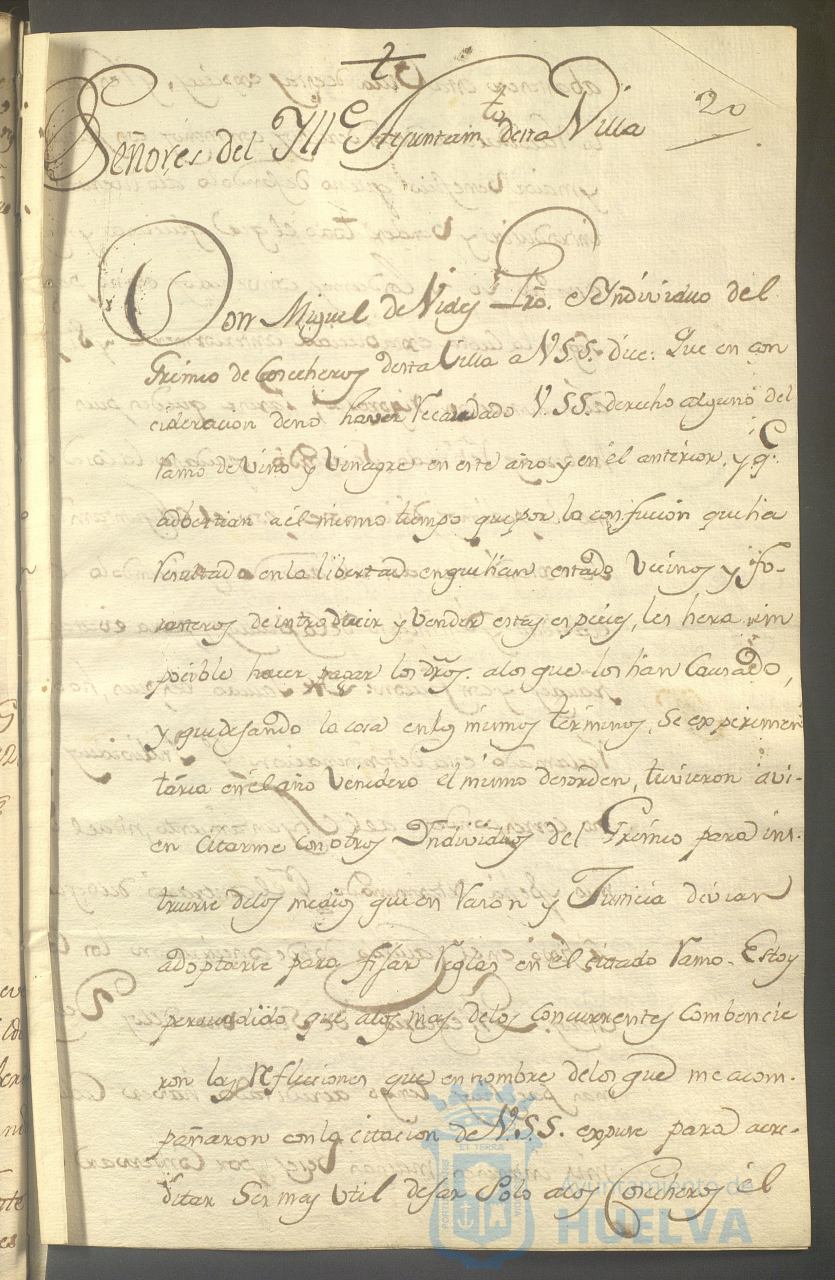 20
Señores del Ylle Ayuntamto desta Villa
Don Miguel de Vides Pro. e Yndividuo del
Gremio de Cosecheros desta Villa a V.S.S. dice: Que en con
cideracion de no haver recaudado V.SS. derecho alguno del
ramo de Vino y Vinagre en este año y en el anterior, y qe.
advertian a el mismo tiempo que por la confucion que ha
resultado en la libertad en que han estado Vecinos y fo-
rasteros de introducir y vender estas especies, les hera im
pocible hacer pagar los dros. a los que los han Causado,
y que dejando la cosa en los mismos terminos, se experimen
taria en el año Venidero el mismo desorden, tuvieron a vi-
en Citarme con otros Yndividuos del Gremio para ins-
truirse de los medios que en razon y Justicia devian
adoptarse para fijar reglas en el citado ramo. Estoy
persuadido que a los mas de los concurrentes combencie
ron las reflecciones que en nombre de los que me acom-
pañaron con la citacion de V.S.S. expuse para acre-
ditar Ser mas Util dejar Solo a los Cosecheros el
Ayuntamiento de
HUELVA